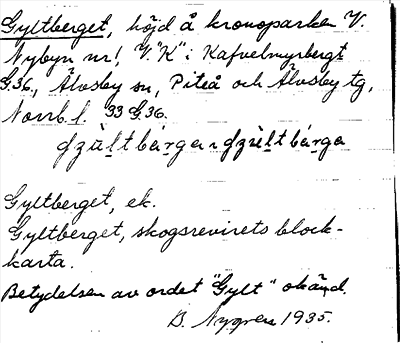 Gyltberget, höjd å kronoparken V.
Nybyn nr 1, V."K" i Kafvelmyrbergt
G.36., Älvsby sn, Piteå och Älvsby tg,
Norrb. l. 33 G 36.
Gyltberget, ek.
Gyltberget, skogsrevirets block-
karta.
Betydelsen av ordet "Gylt" okänd.
B. Nygren 1935.